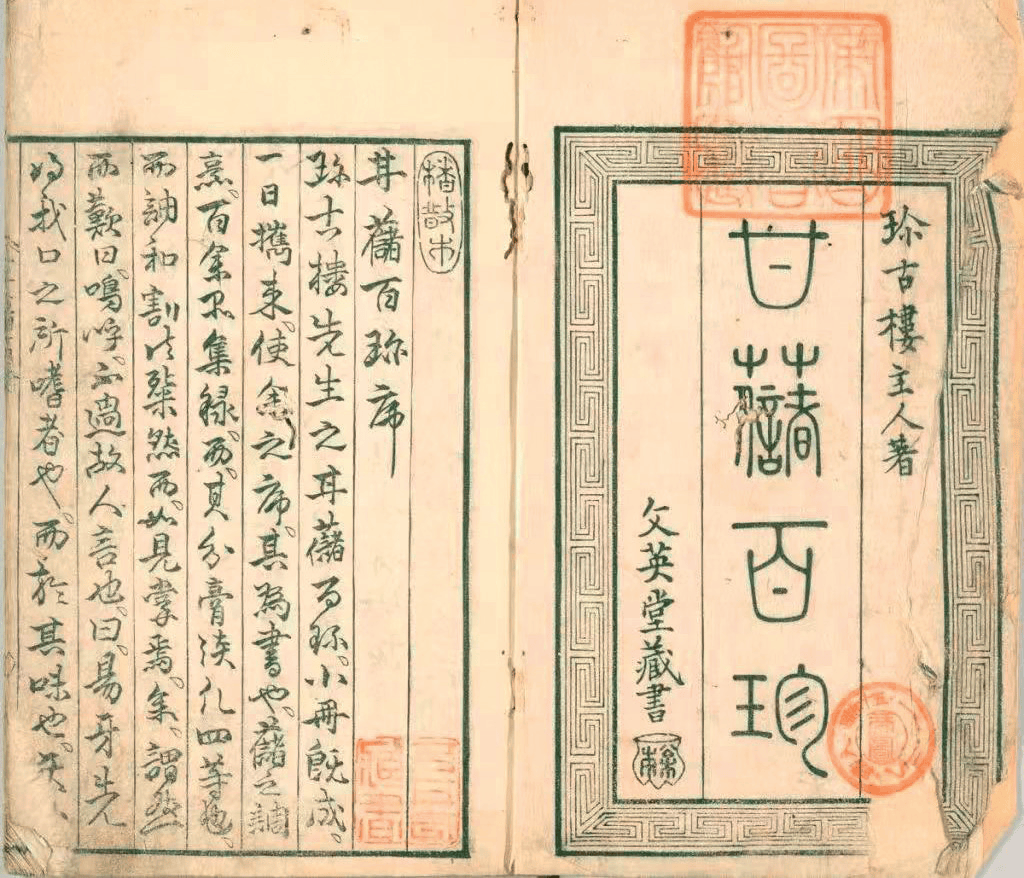 珎古樓主人著
甘藷百珍
文英堂藏書
甘藷百珎序
珎古樓先生之甘藷百珎小冊既成
一日攜来使余之序其為書也藷之調
烹百余品集録而其分膏淡凡四等也
而調和割烹粲然而如見掌焉余謂然
而歎曰嗚呼不過故人言也曰易牙先
得我口之所嗜者也而於其味也